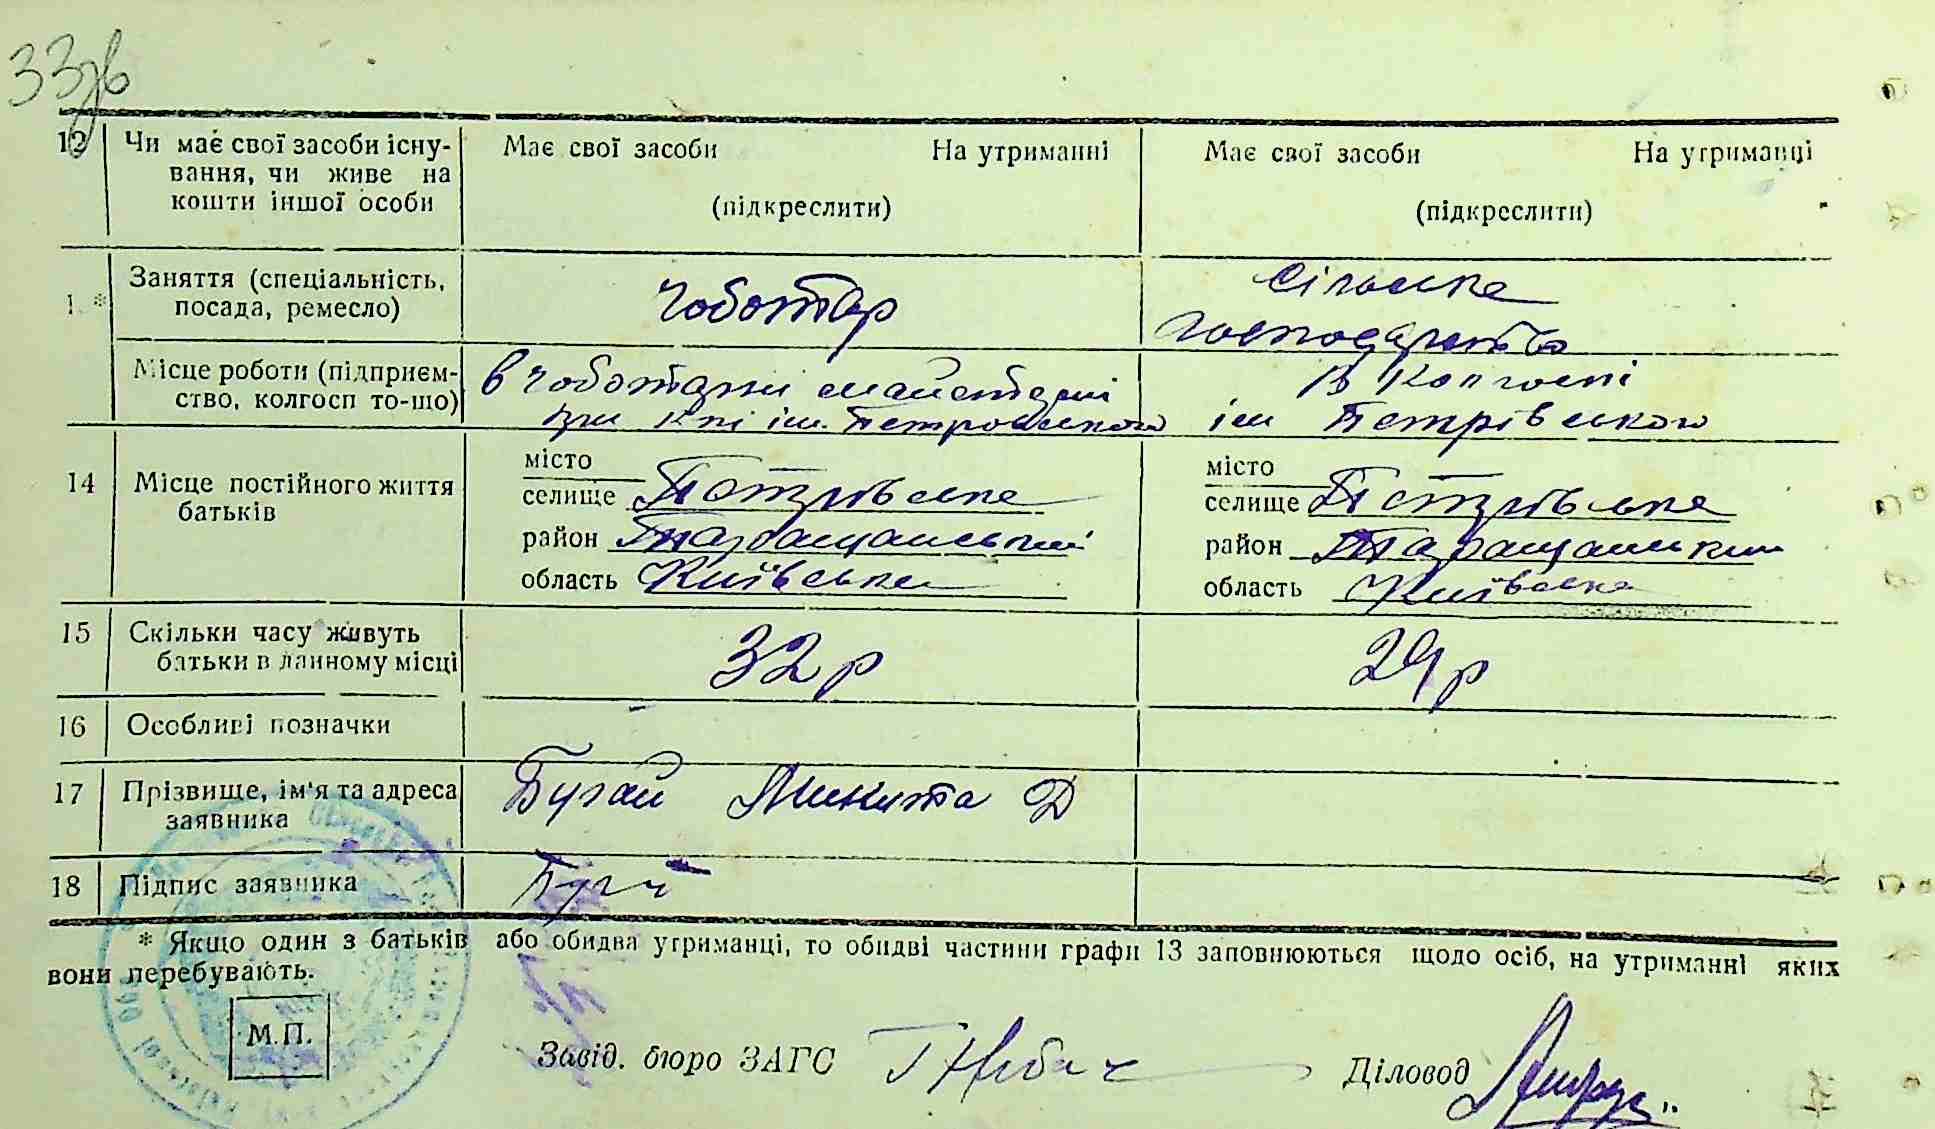 33зв
12 Чи має свої засоби існу- Має свої засоби На утриманні Має свої засоби На утриманці
вання, чи живе на
кошти іншої особи (підкреслити) (підкреслити)
Заняття (спеціальність, чоботар сільське
1 * посада, ремесло) господарство
Місце роботи (підприєм- в чоботарні майстерні В колгоспі
ство, колгосп то-що) при к-пі ім. Петровського ім Петрівського
місто місто
14 Місце постійного життя селище Петрівська селище Петрівська
батьків район Таращанський район Таращанський
область Київська область Київська
15 Скільки часу живуть 32 р 29 р
батьки в данному місці
16 Особливі позначки
17 Прізвище, ім'я та адреса Бугай Микита Д
заявника
18 Підпис заявника Бугай
* Якщо один з батьків або обидва утриманці, то обидві частини графи 13 заповнюються щодо осіб, на утриманні яких
вони перебувають.
М.П.
Завід. бюро ЗАГС Діловод